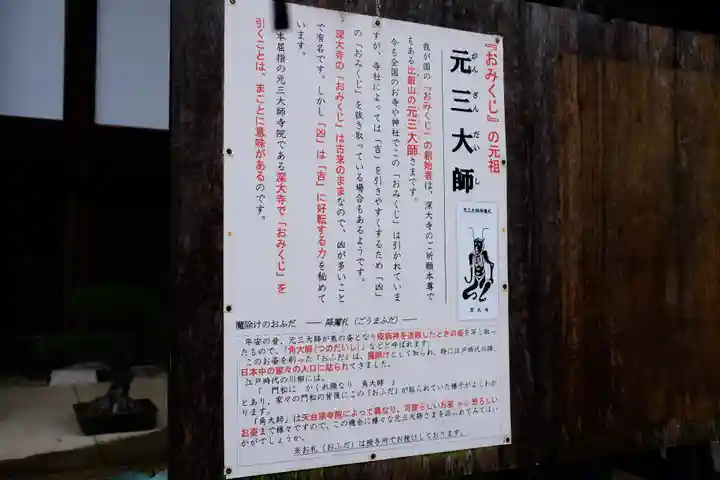 『おみくじ』の元祖
元三大師
がんざんだいし
我が国の『おみくじ』の創始者は、深大寺のご祈願本尊で
もある比叡山の元三大師さまです。
今も全国のお寺や神社でこの「おみくじ」は引かれていま
すが、寺社によっては「吉」を引きやすくするため「凶」
の「おみくじ」を抜き取っている場合もあるようです。
深大寺の「おみくじ」は古来のままなので、凶が多いこと
で有名です。しかし「凶」は「吉」に好転する力を秘めて
います。
本屈指の元三大師寺院である深大寺で「おみくじ」を
引くことは、まことに意味があるのです。
元三大師降魔札
深大寺
魔除けのおふだ ―― 降魔札(ごうまふだ)――
平安の昔、元三大師が鬼の姿となり疫病神を退散したときの姿を写し取っ
たもので、「角大師(つのだいし)」などと呼ばれます。
このお姿を刷った「おふだ」は、魔除けとして知られ、特に江戸時代以降、
日本中の家々の入口に貼られてきました。
江戸時代の川柳には、
「 門松に かくれ顔なり 角大師 」
とあり、家々の門松の背後にこの「おふだ」が貼られていた様子がよくわか
ります。
「角大師」は天台宗寺院によって異なり、可愛らしいお姿から恐ろしい
お姿まで様々ですので、この機会に様々な元三大師さまを訪ねてみてはい
かがでしょうか。
※お札(おふだ)は授与所でお授けしております。